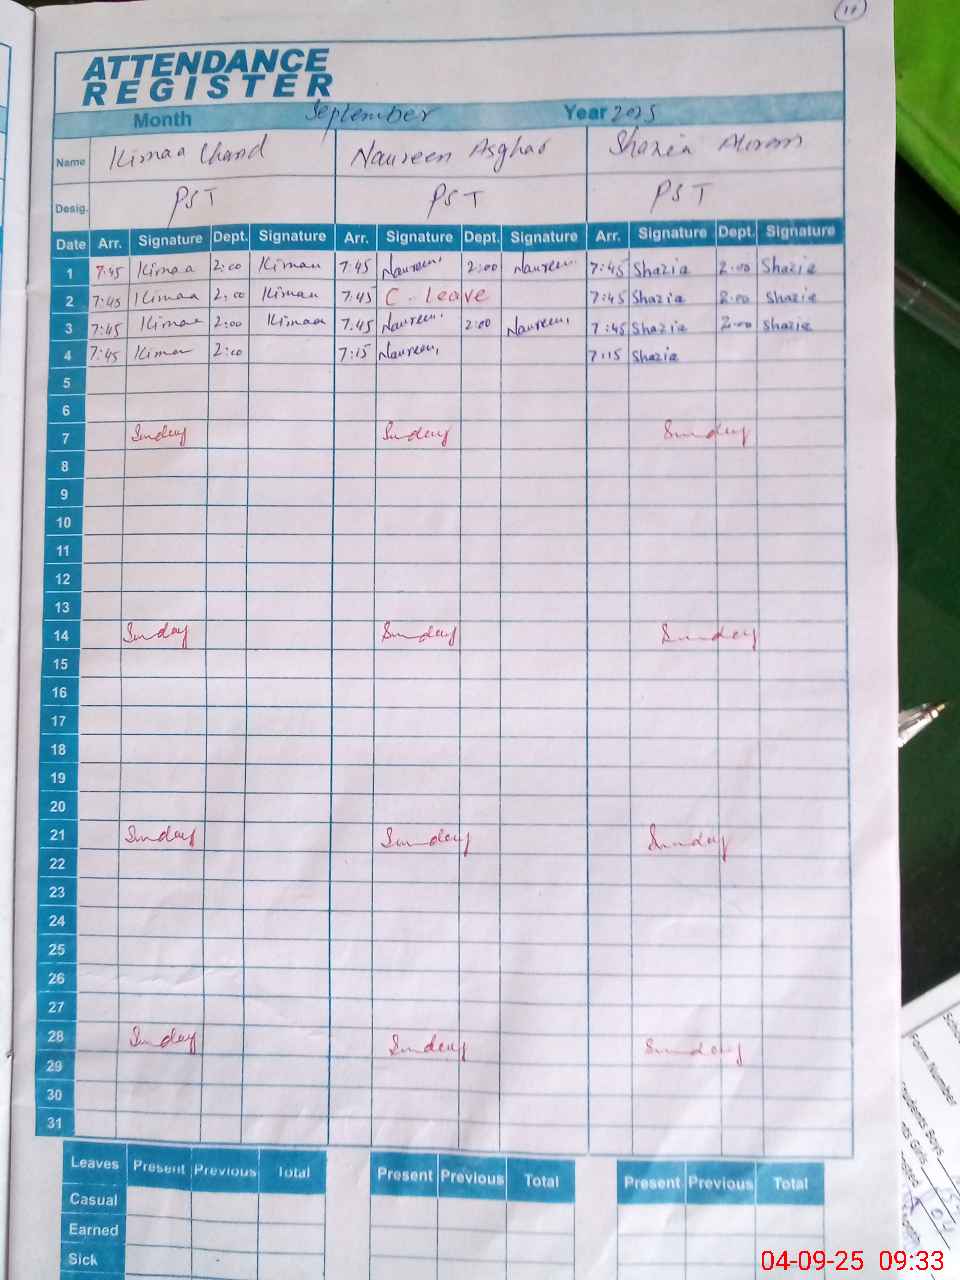 17
ATTENDANCE
REGISTER
Month September Year 2025
Name Kimaa Chand Naureen Asghar Shazia Akram
Desig. PST PST PST
Date Arr. Signature Dept. Signature Arr. Signature Dept. Signature Arr. Signature Dept. Signature
1 7:45 Kimaa 2:00 Kimaa 7:45 Naureen. 2:00 Naureen. 7:45 Shazia 2:00 Shazia
2 7:45 Kimaa 2:00 Kimaa 7:45 C. Leave 7:45 Shazia 2:00 Shazia
3 7:45 Kimaa 2:00 Kimaa 7:45 Naureen. 2:00 Naureen. 7:45 Shazia 2:00 Shazia
4 7:45 Kimaa 2:00 7:15 Naureen. 7:15 Shazia
5
6
7 Sunday Sunday Sunday
8
9
10
11
12
13
14 Sunday Sunday Sunday
15
16
17
18
19
20
21 Sunday Sunday Sunday
22
23
24
25
26
27
28 Sunday Sunday Sunday
29
30
31
Leaves Present Previous Total Present Previous Total Present Previous Total
Casual
Earned
Sick
Form Number
Students Boys
Girls
04-09-25 09:33